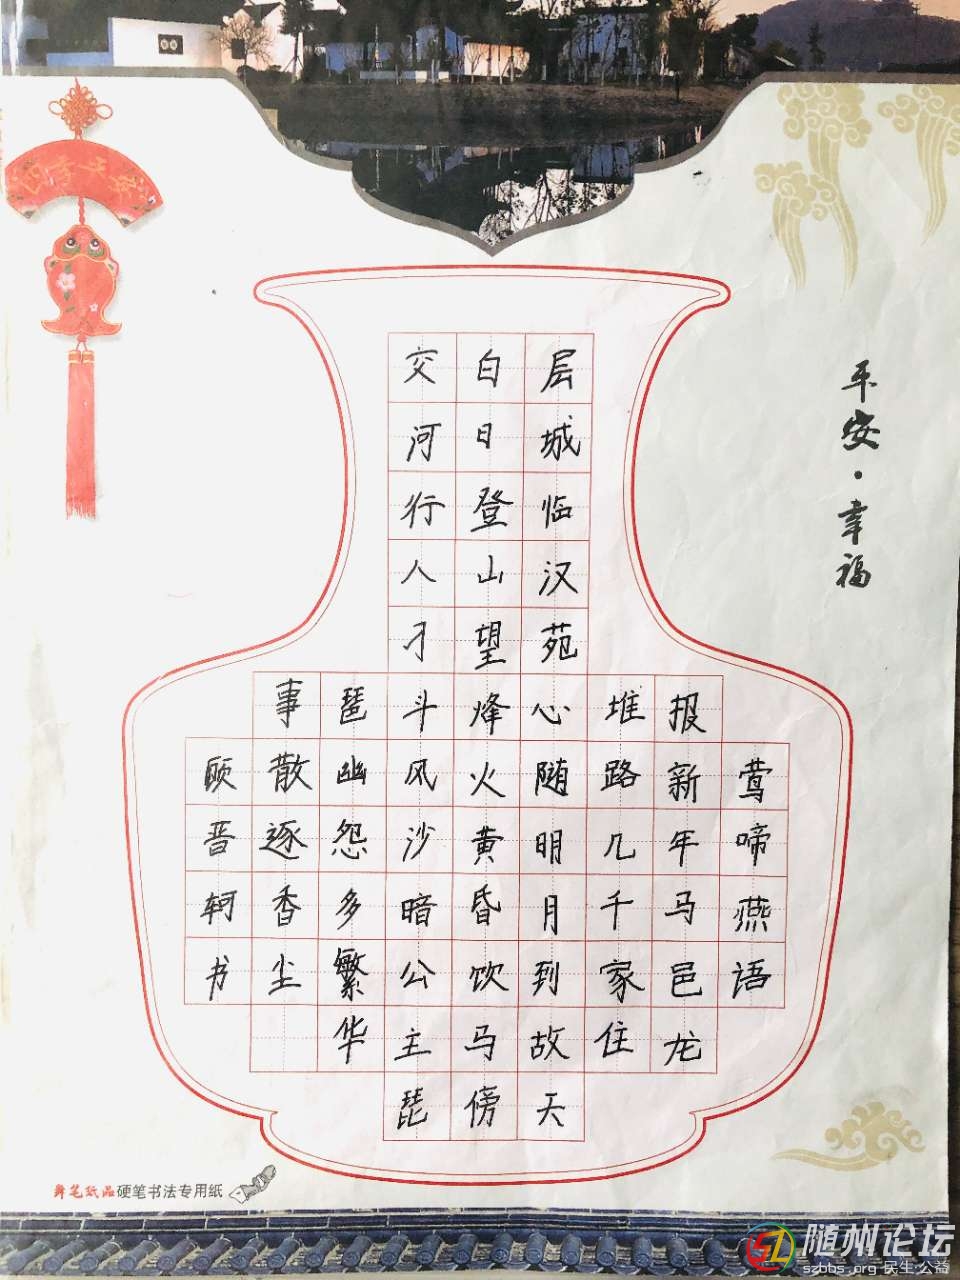 平安·幸福
莺啼燕语
报新年马邑龙
堆路几千家住
层城临汉苑心随明月到故天
白日登山望烽火黄昏饮马傍
交河行人刁斗风沙暗公主琵
琶幽怨多繁华
事散逐香尘
顾晋轲书
笔纸品硬笔书法专用纸
随州论坛
szbbs.org 民生·公益